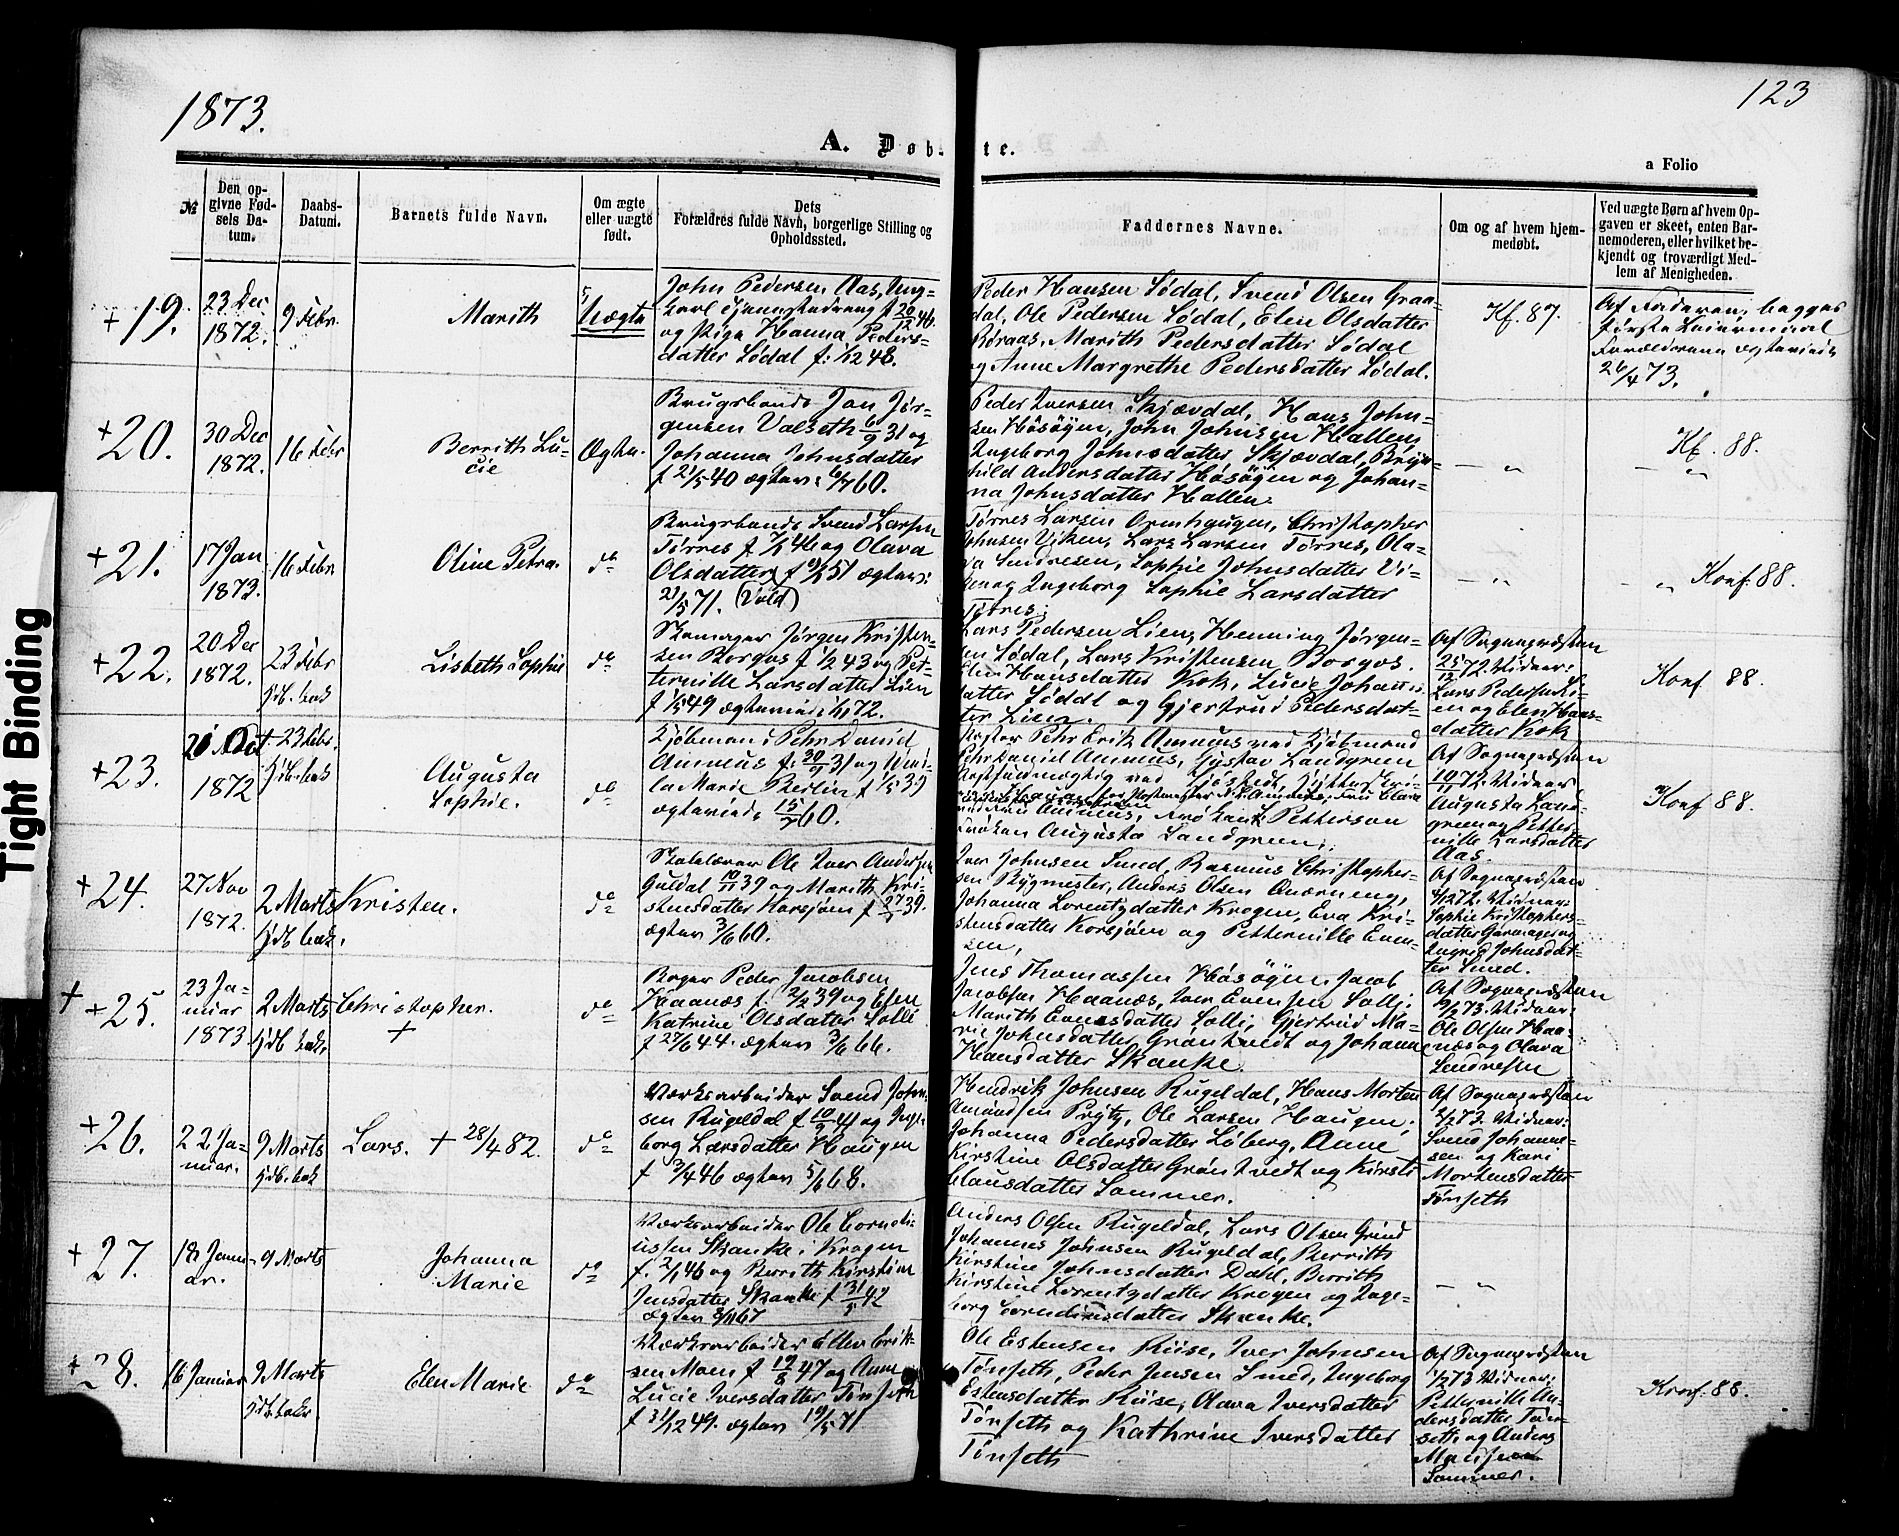 1873.
123
A. Døb te.
a Folio
№
Den op-
givne Fød-
sels Da-
tum.
Daabs-
Datum.
Barnets fulde Navn.
Om ægte
eller uægte
født.
Dets
Forældres fulde Navn, borgerlige Stilling og
Opholdssted.
Faddernes Navne.
Om og af hvem hjem-
medøbt.
Ved uægte Børn af hvem Op-
gaven er skeet, enten Bar-
nemoderen, eller hvilket be-
kjendt og troværdigt Med-
lem af Menigheden.
+ 19.
23 Dec
1872.
9 Febr.
Marith
Uægte
John Pedersen Aas, Ung-
og Pige Hanna Peders-
datter Lødal f. 1/12 48.
Peder Hansen Lødal, Svend Olsen Graa-
dal, Ole Pedersen Lødal, Elen Olsdatter
Børaas, Marith Pedersdatter Lødal
og Anne Margrethe Pedersdatter Lødal.
Kf. 87.
Af Faderen, begges
første Leiermaal
26/4 73.
+ 20.
30 Dec
1872.
16 Febr
Berrith Lu-
cie
Ægte.
Brugsbonde Jon Jør-
gensen Valseth 6/9 31 og
Johanna Johnsdatter
f 21/5 40 ægtev: 6/7 60.
Peder Iversen Skjævdal, Hans John-
sen Høsøyen, John Johnsen Hallen,
Ingeborg Johnsdatter Skjævdal, Bryn-
hild Andersdatter Høsøyen og Johan-
na Johnsdatter Hallen.
— „
Kf. 88.
— „
+ 21.
17 Jan
1873.
16 Febr
Oline Petra.
do
Brugsbonde Svend Larsen
Tørres f 7/1 46 og Olava
Olsdatter f 51 ægtev:
21/5 71. (Vold)
Tørres Larsen Ormhaugen, Christopher
Johnsen Viken, Lars Larsen Tørres, Ola-
va Sendresen, Sophie Johnsdatter Vi-
ken og Ingeborg Sophie Larsdatter
Tørres.
— „
— „ Konf: 88.
+ 22.
20 Dec
1872.
23 Febr
hjdb. bek
Lisbeth Sophie
do
Skomager Jørgen Kristen-
sen Borgos f 1/2 43 og Pet-
ternille Larsdatter Lien
f 1/5 49 ægteviede 72.
Lars Pedersen Lien, Henning Jørgen-
sen Lødal, Lars Kristensen Borgos.
Elen Hansdatter Kok, Lucie Johans-
datter Lødal og Gjertrud Pedersdat-
ter Lien.
Af Sognepresten
25/12 72. Vidner:
Lars Pedersen Li-
en og Elen Hans-
datter Kok
Konf. 88.
+ 23.
1872
23 Febr.
hjdb. bek
Augusta
Sophie.
do
Kjøbmand Pehr Daniel
Anneus f. 30/9 31 og Emi-
lie Marie Berlin f 1/5 39
ægteviede 15/7 60.
Pehr Daniel Anneus, Gustav Landgren
Frøken Augusta Landgren.
Af Sognepresten
10/11 72. Vidner:
Augusta Land-
gren og Petter-
nille Larsdatter
Aas.
Konf 88.
+ 24.
27 Nov
1872.
2 Marts
hjdb bek.
Kristen.
do
Skolelærer Ole Iver Andersen
Guldal 10/11 39 og Marith Kri-
stensdatter Korsjøen f 27/ 39.
ægtev 3/6 60.
Iver Johnsen Smed, Rasmus Christopher-
sen Bygmester, Anders Olsen Qværneng,
Johanna Lorentzdatter Krogen, Eva Kri-
stensdatter Korsjøen og Petternille Even-
sen,
Af Sognepresten
4/12 72. Vidner:
Sophie Kristophers-
datter Garmager og
Ingrid Johnsdat-
ter Smed.
+ + 25.
23 Ja-
nuar
1873.
2 Marts
hjdb bek.
Christopher.
+
do
Boger Peder Jacobsen
Haanæs f. 2/2 39 og Elen
Katrine Olsdatter Solli
f 27/6 44. ægtev 3/6 66.
Jens Thomassen Høsøyen, Jacob
Jacobsen Haanæs, Iver Evensen Solli,
Marith Evensdatter Solli, Gjertrud Ma-
rie Johnsdatter Grøntvedt og Johanne
Hansdatter Skanke.
Af Sognepresten
9/2 73. Vidner:
Ole Olsen Haa-
næs og Olava
Sendresen
+ 26.
22 Ja-
nuar.
9 Marts
hjdb. bek
Lars. + 28/4 82.
do
Værksarbeider Svend John-
sen Rugeldal f 10/9 41 og Inge-
borg Larsdatter Haugen
f 3/4 46 ægtev 5/6 68.
Hendrik Johnsen Rugeldal, Hans Morten
Amundsen Prytz, Ole Larsen Haugen,
Johanna Pedersdatter Løberg, Anne
Kirstine Olsdatter Grøntvedt og Kirsti
Clausdatter Sommer.
Af Sognepresten
2/2 73. Vidner:
Svend Johanne-
sen og Kari
Mortensdatter
Tønseth
+ 27.
18 Janu-
ar.
9 Marts
Johanna
Marie
do
Værksarbeider Ole Corneli-
ussen Skanke i Krogen
f. 2/1 46 og Berrith Kirstine
Jensdatter Skanke f 31/ 42
ægtev 3/11 67
Anders Olsen Rugeldal, Lars Olsen Grind
Johannes Johnsen Rugeldal, Berrith
Kirstine Johnsdatter Dahl, Berrith
Kirstine Lorentzdatter Krogen og Inge-
borg Corneliusdatter Skanke.
— „
+ 28.
16 Januar
9 Marts
hjdb. bekr
Elen Marie
do
Værksarbeider Ellev Erik-
sen Moen f 19/8 47 og Anne
Lucie Iversdatter Tønseth
f 31/12 49. ægtev 19/5 71
Ole Estensen Riise, Iver Johnsen
Tønseth, Peder Jensen Smed, Ingeborg
Estensdatter Riise, Olava Iversdatter
Tønseth og Kathrine Iversdatter
Tønseth
Af Sognepresten
1/2 73 Vidner:
Petternille An-
dersdatter Tøn-
seth og Anders
Sommer.
Konf. 88.
Tight Binding